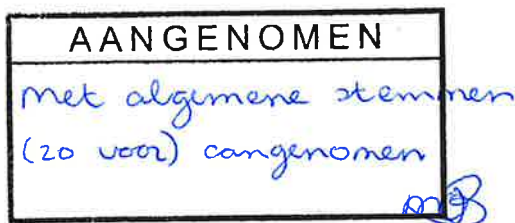 AANGENOMEN
met algemene stemmen
(20 voor) aangenomen